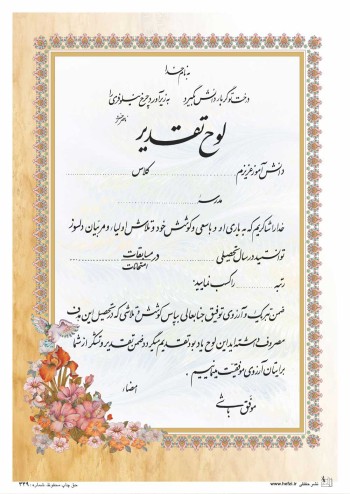 به نام خدا
درخت تو گر بار دانش بگیرد به زیر آوردی چرخ نیلوفری را
ناصر خسرو
لوح تقدیر
دانش آموز عزیزم کلاس
مدرسه
خدا را شاکریم که به یاری او و با سعی و کوشش خود و تلاش اولیاء و مربیان دلسوز
توانستید در سال تحصیلی در مسابقات
امتحانات
رتبه را کسب نمایید.
ضمن تبریک و آرزوی توفیق جنابعالی به پاس کوشش و تلاشی که در تحصیل این هدف
مصروف داشته‌اید این لوح یادبود تقدیم میگردد و ضمن تقدیر و تشکر از شما
برایتان آرزوی موفقیت مینماییم.
امضاء
موفق باشی
نشر حفظی www.hefzi.ir حق چاپ محفوظ، شماره: ۳۴۹